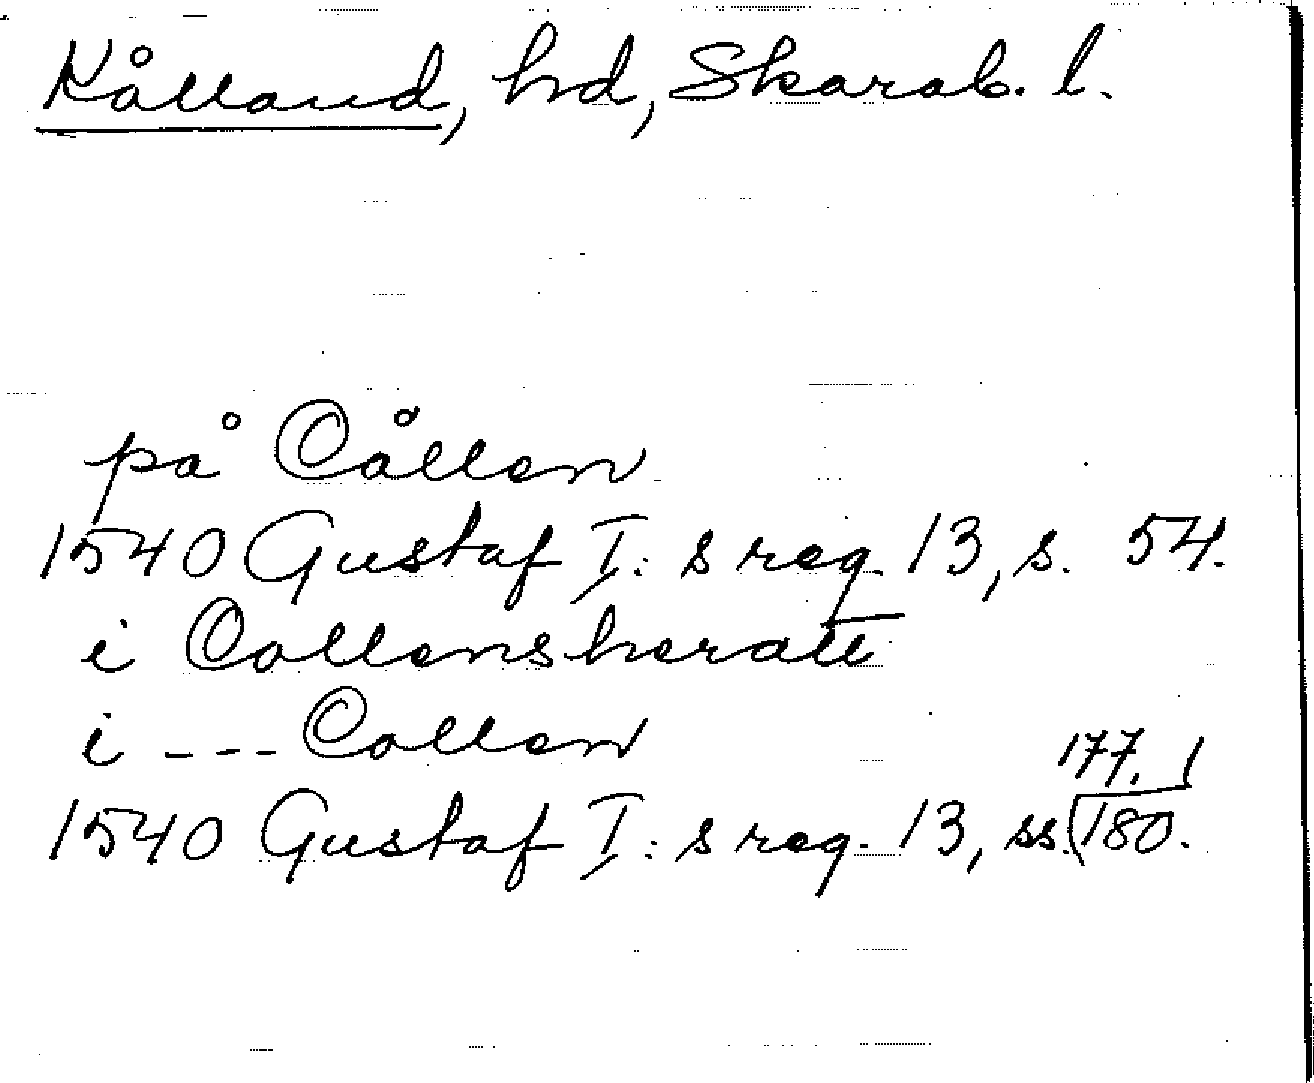 Kålland, hd, Skarab. l.
på Cållen
1540 Gustaf I:s reg. 13, s. 54.
i Collensheratt
i --- Collen
1540 Gustaf I:s reg. 13, ss. 177, 180.